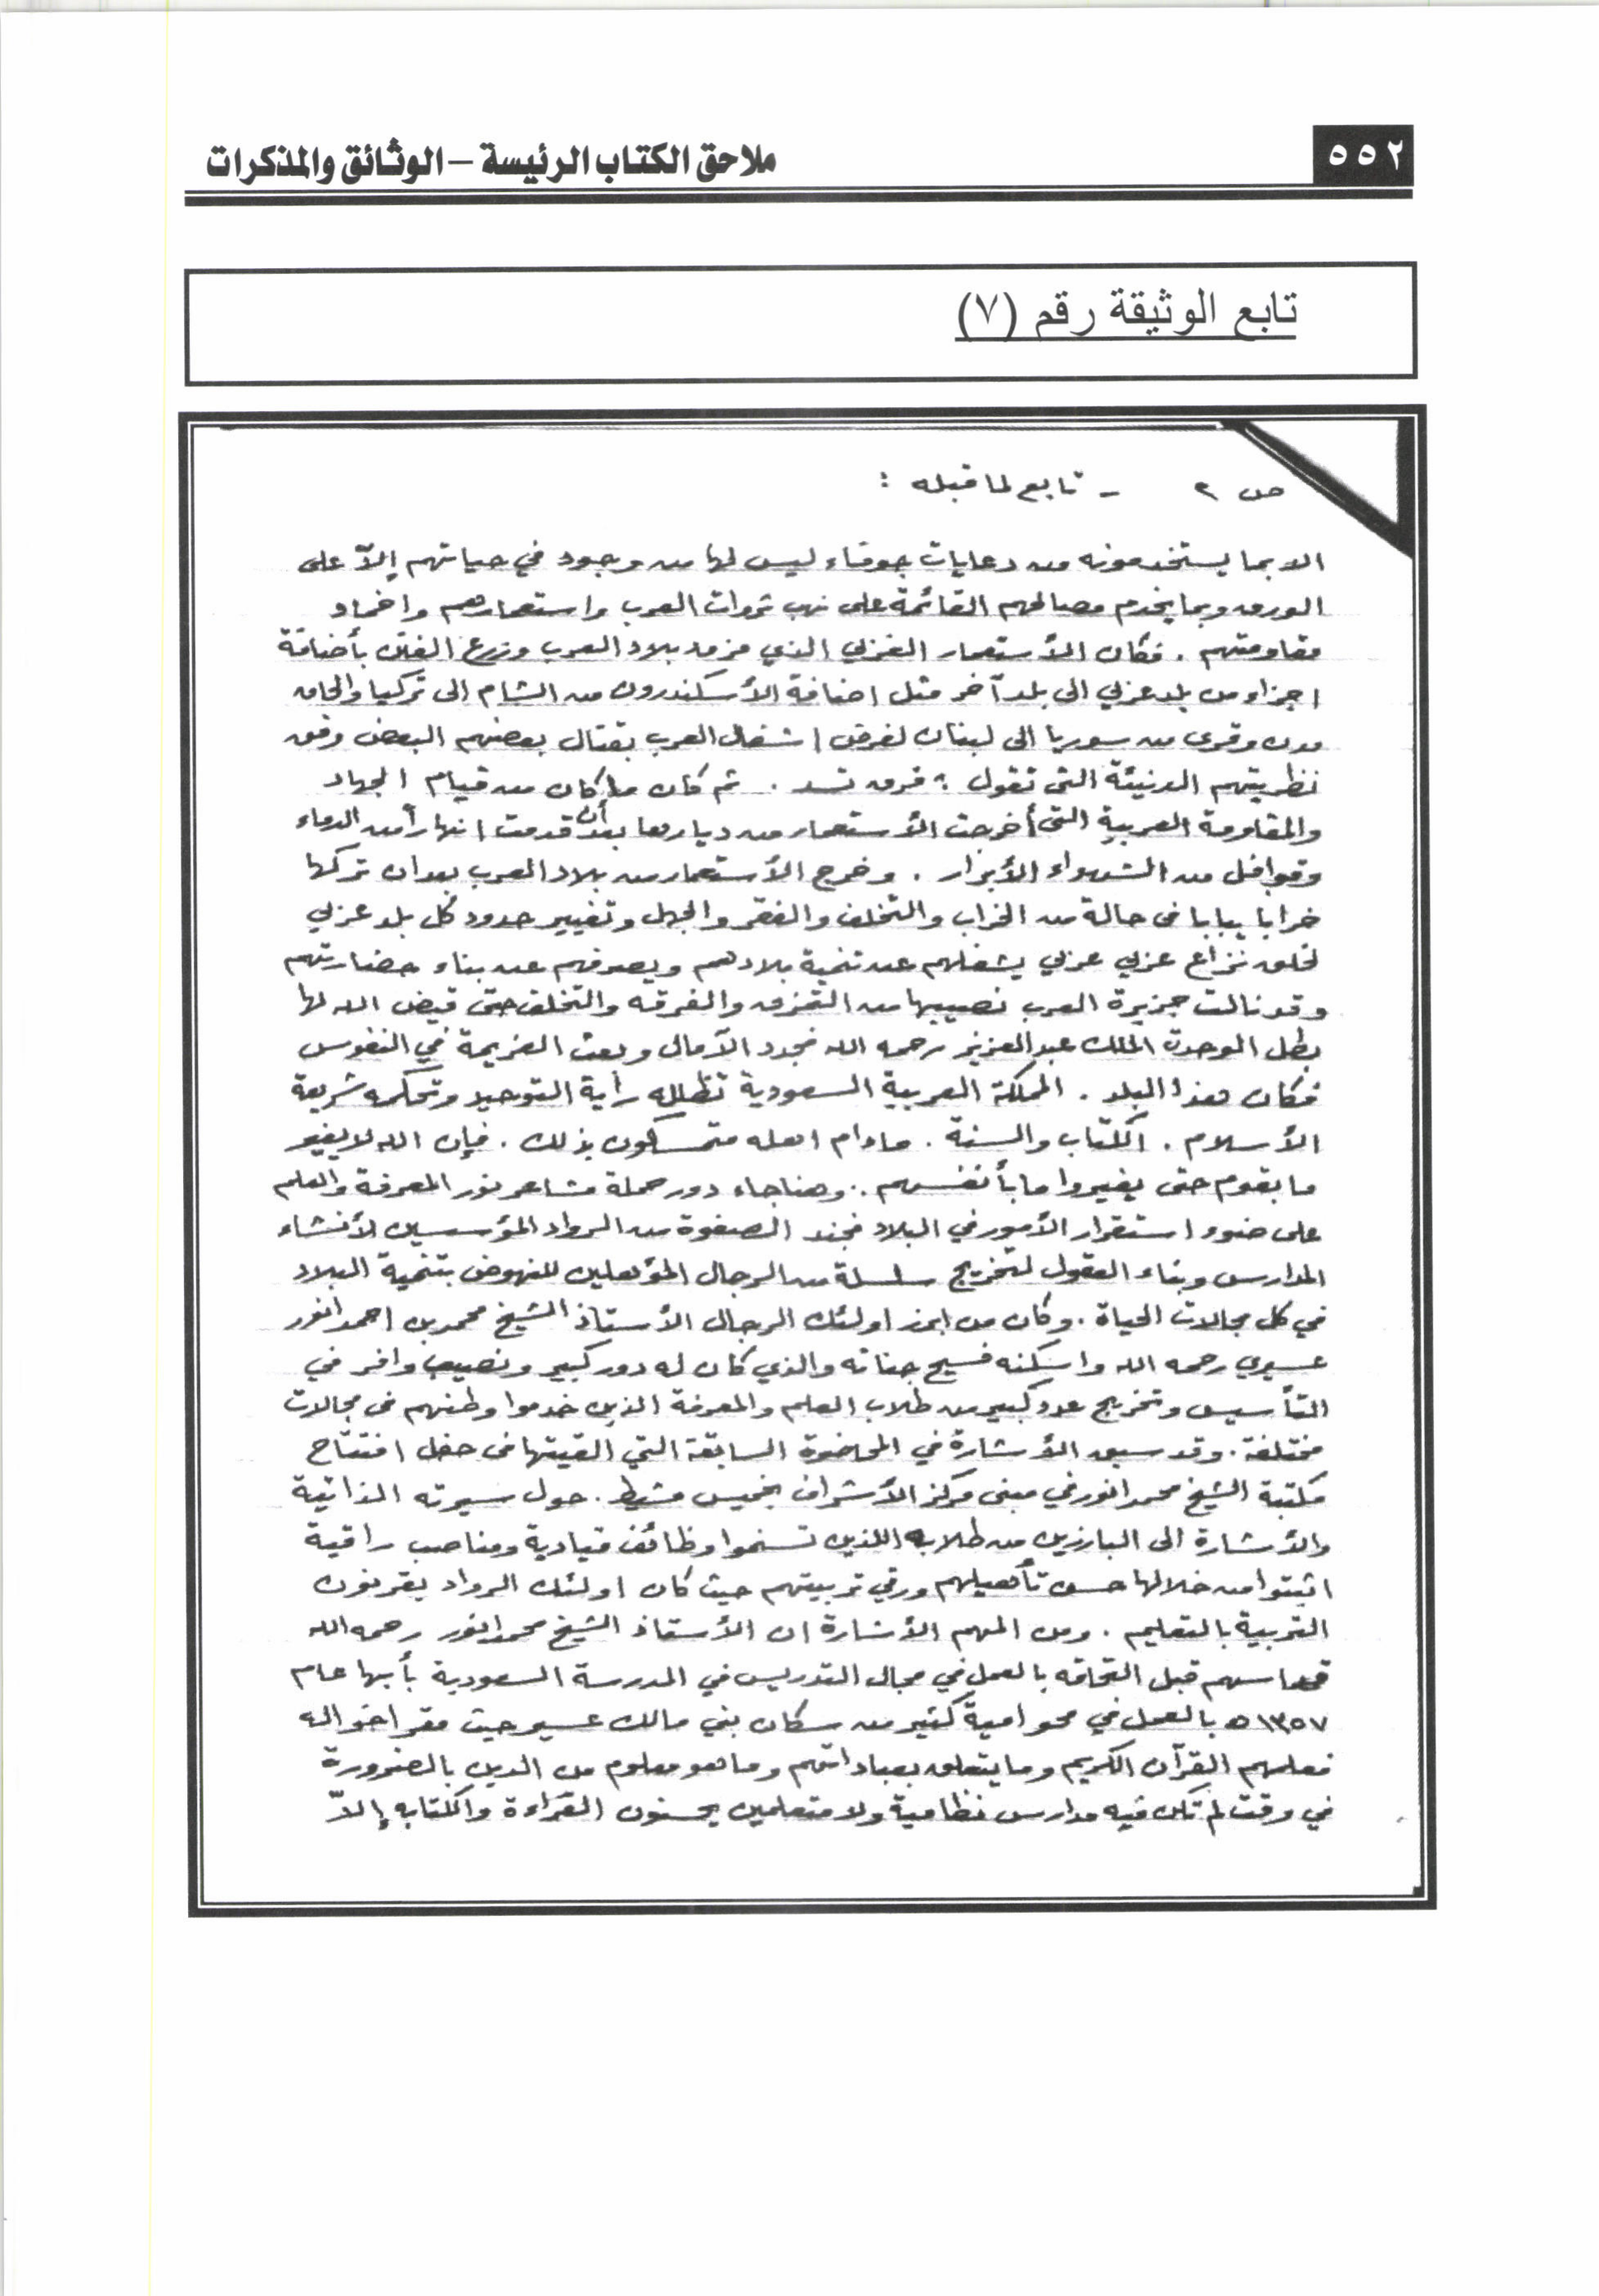 ٥٥٢
ملاحق الكتاب الرئيسة – الوثائق والمذكرات
تابع الوثيقة رقم (٧)
ص ٢ - تابع لما قبله :
الا بما يستخدمونه من دعايات جوفاء ليس لها من وجود في حياتهم إلاّ على
الورق وبما يخدم مصالحهم القائمة على نهب ثروات العرب واستعمارهم واخماد
مقاومتهم . فكان الأستعمار الغربي الذي مزق بلاد العرب وزرع الفتن بأضافة
اجزاء من بلد عربي الى بلد آخر مثل اضافة الأسكندرون من الشام الى تركيا والحاق
مدن وقرى من سوريا الى لبنان لغرض اشغال العرب بقتال بعضهم البعض وفق
نظريتهم الدنيئة التي تقول : فرق تسد . ثم كان ما كان من قيام الجهاد
والمقاومة العربية التي أخرجت الأستعمار من ديارها بعد أن قدمت انهاراً من الدماء
وقوافل من الشهداء الأبرار . وخرج الأستعمار من بلاد العرب بعد ان تركها
خرابا يبابا في حالة من الخراب والتخلف والفقر والجهل وتغيير حدود كل بلد عربي
لخلق نزاع عربي عربي يشغلهم عن تنمية بلادهم ويصرفهم عن بناء حضارتهم
وقد نالت جزيرة العرب نصيبها من التمزق والفرقه والتخلف حتى قيض الله لها
بطل الوحدة الملك عبدالعزيز رحمه الله فجدد الآمال وبعث العزيمة في النفوس
فكان هذا البلد . المملكة العربية السعودية تظلله رأية التوحيد وتحكمه شريعة
الأسلام . الكتاب والسنة . مادام اهله متمسكون بذلك . فإن الله لا يغير
ما بقوم حتى يغيروا ما بأنفسهم . وهنا جاء دور حملة مشاعر نور المعرفة والعلم
على ضوء استقرار الأمور في البلاد فجند الصفوة من الرواد المؤسسين لأنشاء
المدارس وبناء العقول لتخريج سلسلة من الرجال المؤهلين للنهوض بتنمية البلاد
في كل مجالات الحياة . وكان من ابرز اولئك الرجال الأستاذ الشيخ محمد بن احمد انور
عسيري رحمه الله واسكنه فسيح جناته والذي كان له دور كبير ونصيب وافر في
التأسيس وتخريج عدد كبير من طلاب العلم والمعرفة الذين خدموا وطنهم في مجالات
مختلفة . وقد سبق الأشارة في المحاضرة السابقة التي القيتها في حفل افتتاح
مكتبة الشيخ محمد انور في مبنى مركز الأشراف بخميس مشيط . حول سيرته الذاتية
والأشارة الى البارزين من طلابه اللذين تسنموا وظائف قيادية ومناصب راقية
اثبتوا من خلالها حسن تأهيلهم ورقي تربيتهم حيث كان اولئك الرواد يقرنون
التربية بالتعليم . ومن المهم الأشارة ان الأستاذ الشيخ محمد انور رحمه الله
قد اسهم قبل التحاقه بالعمل في مجال التدريس في المدرسة السعودية بأبها عام
١٣٥٧ه بالعمل في محو امية كثير من سكان بني مالك عسير حيث مقر اخواله
فعلمهم القرآن الكريم وما يتعلق بعباداتهم وما هو معلوم من الدين بالضرورة
في وقت لم تكن فيه مدارس نظامية ولا متعلمين يحسنون القراءة والكتابه إلاّ